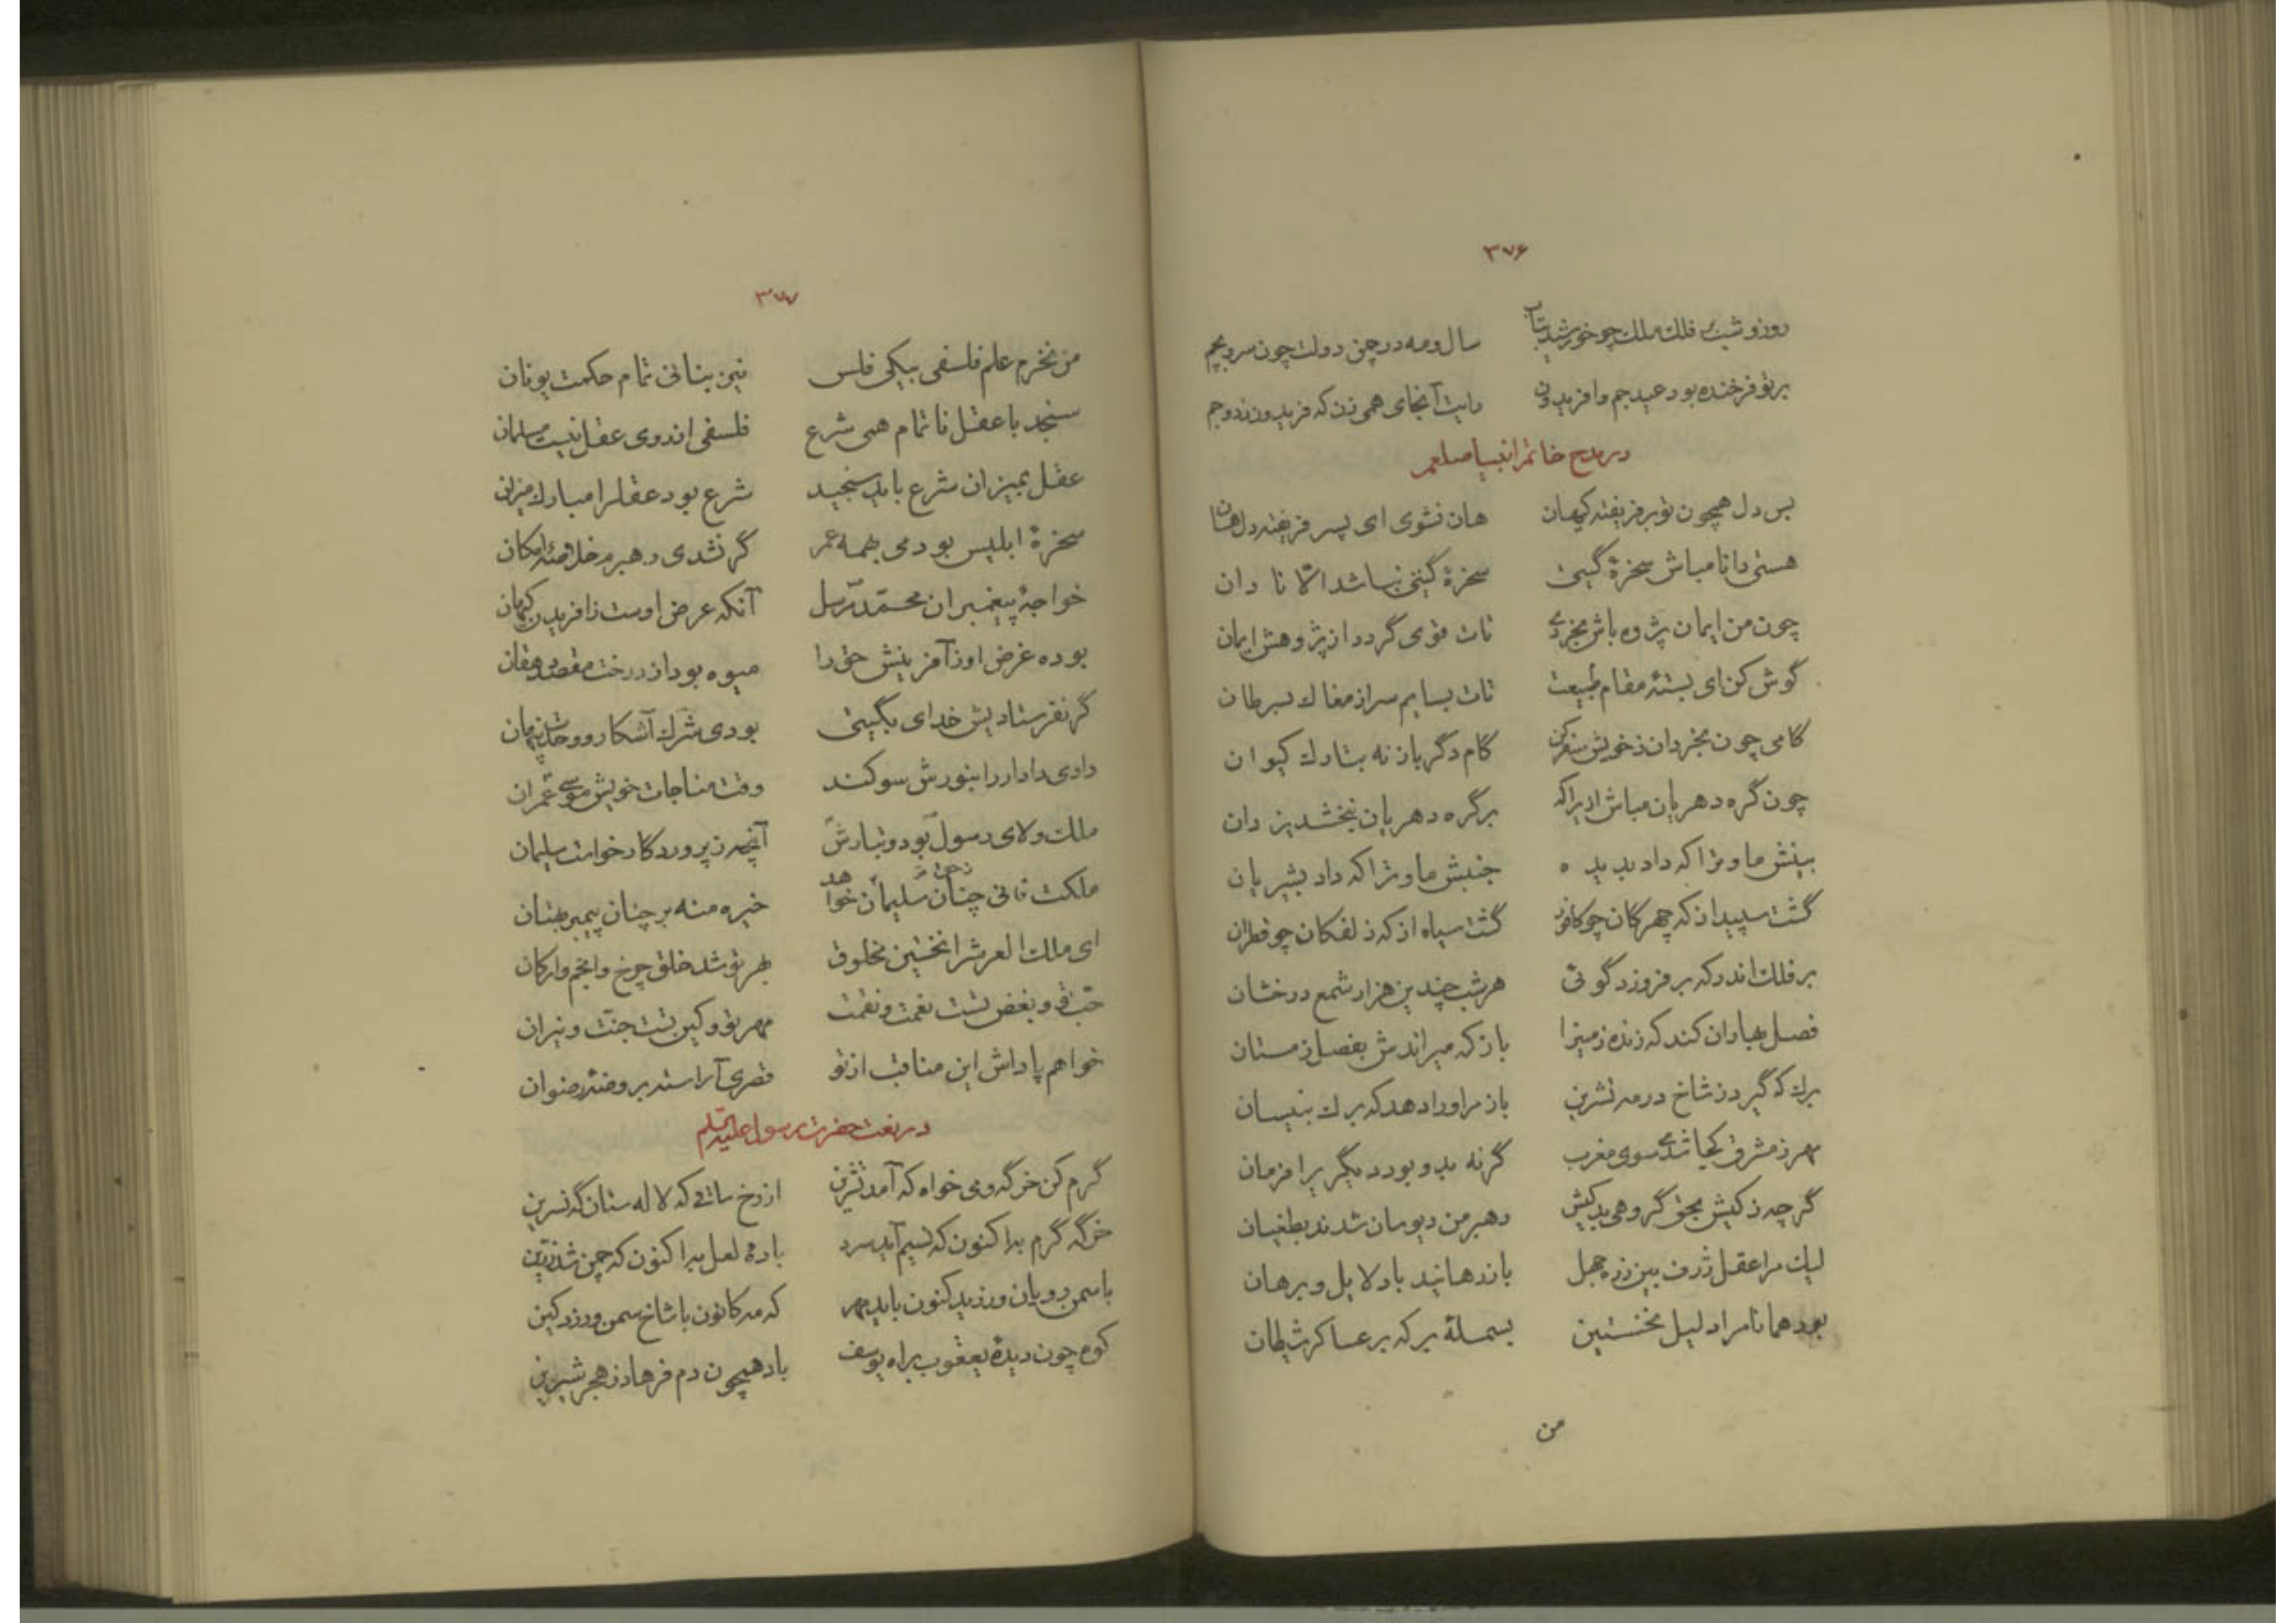 ۳۷۶
روز و شب بر فلک ملک چو خورشید بتاب سال و مه در چمن دولت چون سرو بچم
بر تو فرخنده بود عید جم و افریدون رایت آنجای همی زن که فریدون زد و جم
در مدح خاتم انبیا صلعم
بس دل همچون تو بر فریفته کیهان هان نشوی ای پسر فریفته دل هان
هستی دانا مباش سخرهٔ گیتی سخرهٔ گیتی نباشد الا نادان
چون من ایمان پژوه باش بخردی تات قوی گردد از پژوهش ایمان
گوش کن ای بستهٔ مقام طبیعت تات بسایم سر از مغاک بسرطان
گامی چون بخردان ز خویش سفر کن گام دگر باز نه بتارک کیوان
چون گره دهریان مباش ازیراکه بر گره دهریان نبخشد یزدان
بینش ما و ترا که داد بدیده جنبش ما و ترا که داد بشریان
گشت سپید از که چهرگان چو کافور گشت سیاه از که زلفکان چو قطران
بر فلک اندر که بر فروزد گوئی هر شب چندین هزار شمع درخشان
فصل بهاران کند که زنده زمین را باز که میراندش بفصل زمستان
برگ که گیرد ز شاخ در مه تشرین باز مر او را دهد که برگ بنیسان
مهر ز مشرق کجا شدی سوی مغرب گرنه بدو بود دیگریرا فرمان
گرچه ز کیش بحق گروهی بدکیش رهبر من دیوسان شدند بطغیان
لیک مرا عقل ژرف بین ز ره جهل باز رهانید با دلایل و برهان
بود همانا مرا دلیل نخستین بسملهٔ بر که بر عساکر شیطان
من
۳۷۷
من نخرم علم فلسفی بیکی فلس نیز بنانی تمام حکمت یونان
سنجد با عقل ناتمام همی شرع فلسفی از روی عقل نیست مسلمان
عقل بمیزان شرع باید سنجید شرع بود عقل را مبارک میزان
سخرهٔ ابلیس بودمی بهمه عمر گر نشدی رهبرم خلاصهٔ امکان
خواجهٔ پیغمبران محمد مرسل آنکه عرض اوست ز افریدن کیهان
بوده غرض او ز آفرینش حق را میوه بود از درخت مقصد دهقان
گر نفرستادیش خدای بگیتی بودی شرک آشکار و وحدت پنهان
دادی دادار را بنورش سوگند وقت مناجات خویش موسی عمران
ملک ولای رسول بود و تبارش آنچه ز پروردگار خواست سلیمان
ملکت فانی چنان سلیمان ز حق خواهد خیره منه بر چنان پیمبر بهتان
ای ملک العرش را نخستین مخلوق بهر تو شد خلق چرخ و انجم و ارکان
حب تو و بغض تست نعمت و نقمت مهر تو و کین تست جنت و نیران
خواهم پاداش این مناقب از تو قصری آراسته بروضهٔ رضوان
در نعت حضرت رسول علیه السلم
گرم کن خرگه و می خواه که آمد تشرین از رخ ساقی که لاله ستان گه نسرین
خرگه گرم به اکنون که نسیم آید سرد بادهٔ لعل به اکنون که چمن شد زرین
با سمن رویان ورزید کنون باید مهر که مه کانون با شاخ سمن ورزد کین
کوه چون دیدهٔ یعقوب براه یوسف باد همچون دم فرهاد ز هجر شیرین